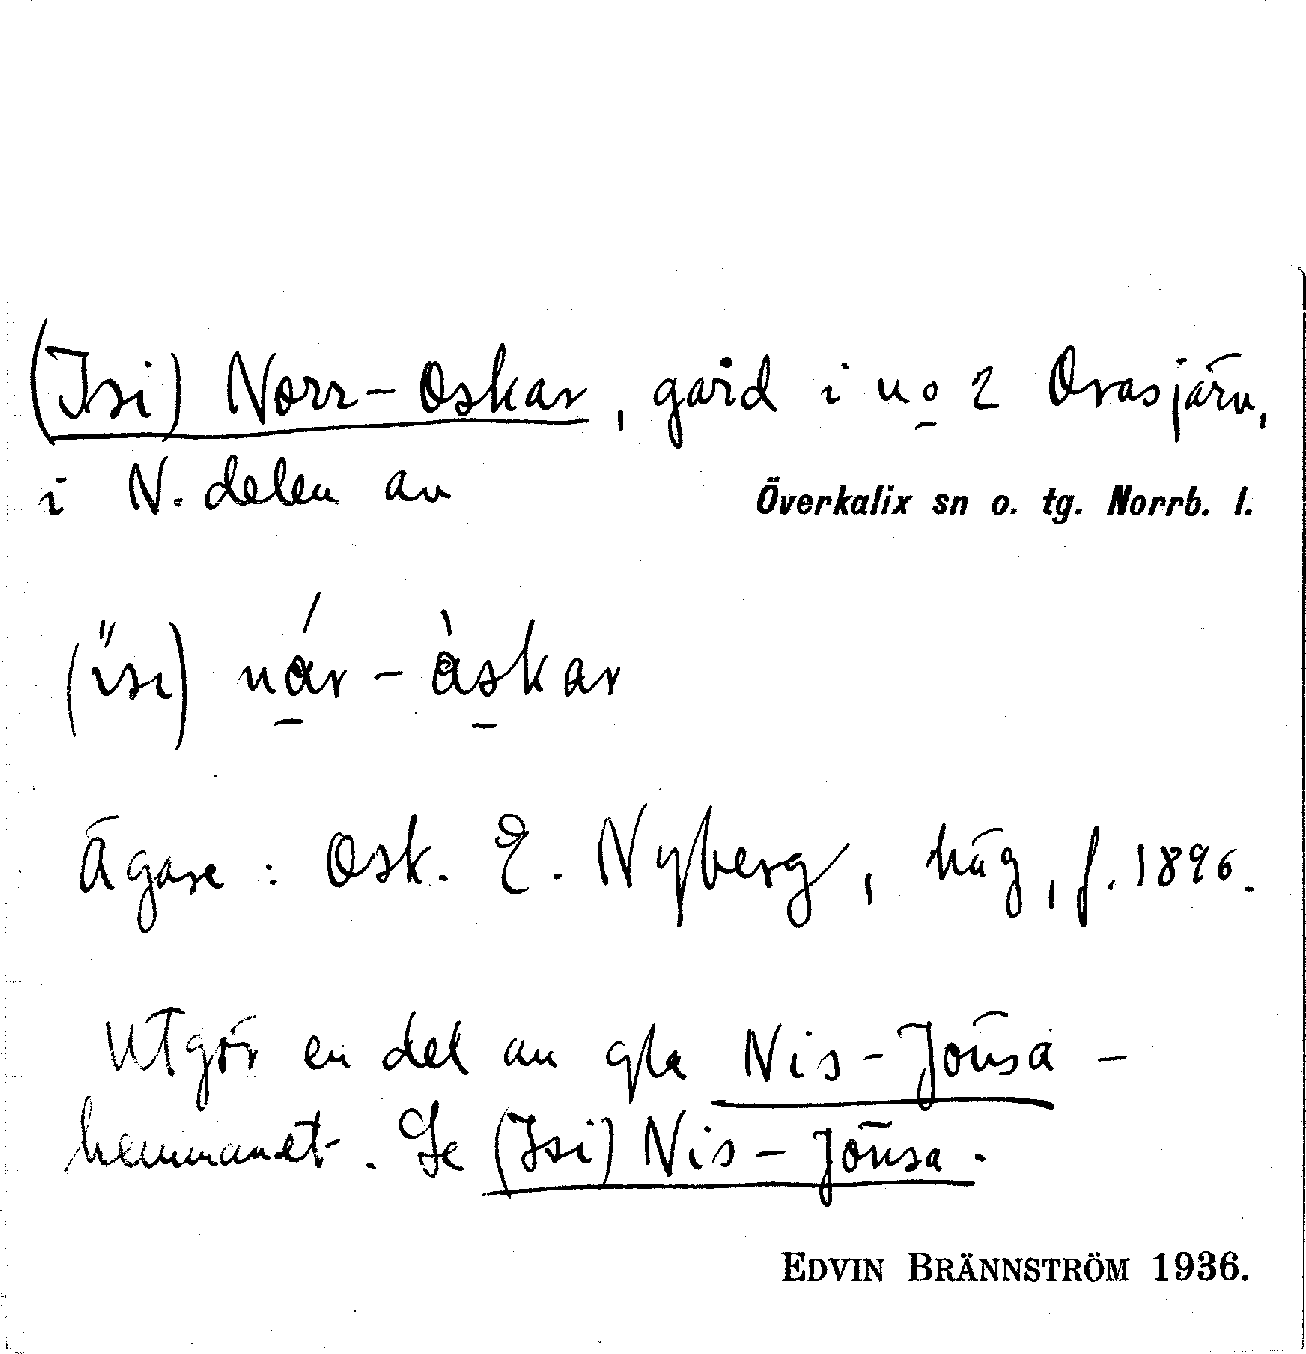 (Isi) Norr-Oskar, gård i no 2 Orasjärv,
i N. delen av Överkalix sn o. tg. Norrb. l.
(isi) når-åskar
Ägare: Osk. E. Nyberg, häg, f. 1896.
Utgör en del av gla Nis-Jönsa-
hemmanet. Se (Isi) Nis-Jönsa.
EDVIN BRÄNNSTRÖM 1936.